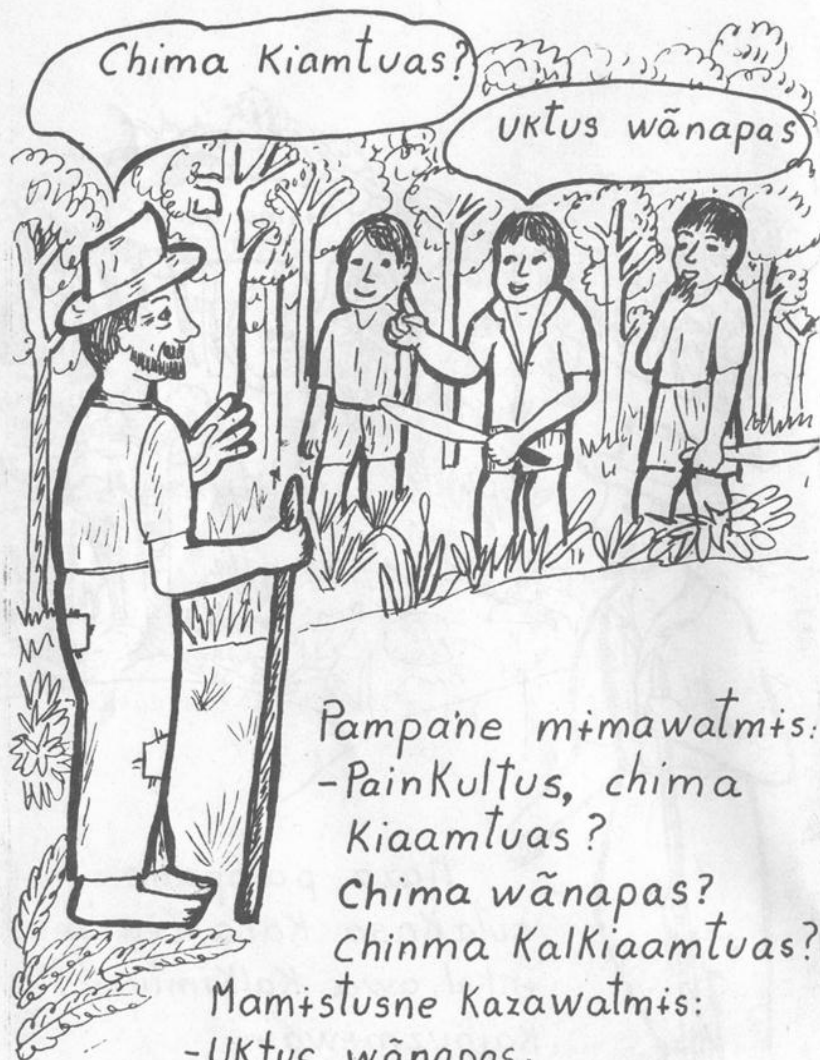 Chima Kiamtuas?
UKtus wãnapas
Pampane mɨmawatmɨs:
-PainKultus, chima
Kiaamtuas?
Chima wãnapas?
Chinma KalKiaamtuas?
Mamɨstusne Kazawatmɨs:
-UKtus wãnapas.